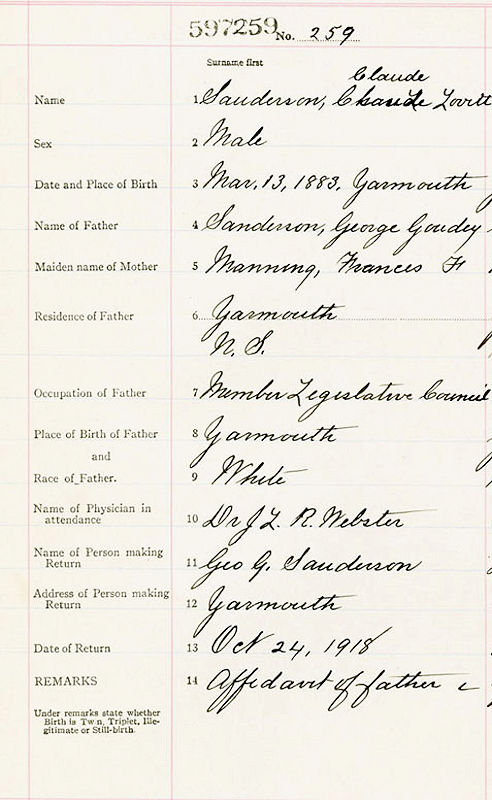 597259 No. 259
Surname first
Claude
Name 1 Sanderson, Claude Lovitt
Sex 2 Male
Date and Place of Birth 3 Mar. 13, 1883. Yarmouth
Name of Father 4 Sanderson, George Goudey
Maiden name of Mother 5 Manning, Frances F
Residence of Father 6 Yarmouth
N. S.
Occupation of Father 7 Member Legislative Council
Place of Birth of Father 8 Yarmouth
and
Race of Father. 9 White
Name of Physician in
attendance 10 Dr J. L. R. Webster
Name of Person making
Return 11 Geo G. Sanderson
Address of Person making
Return 12 Yarmouth
Date of Return 13 Oct 24, 1918
REMARKS 14 Affidavit of father
Under remarks state whether
Birth is Twin, Triplet, Ille-
gitimate or Still-birth.